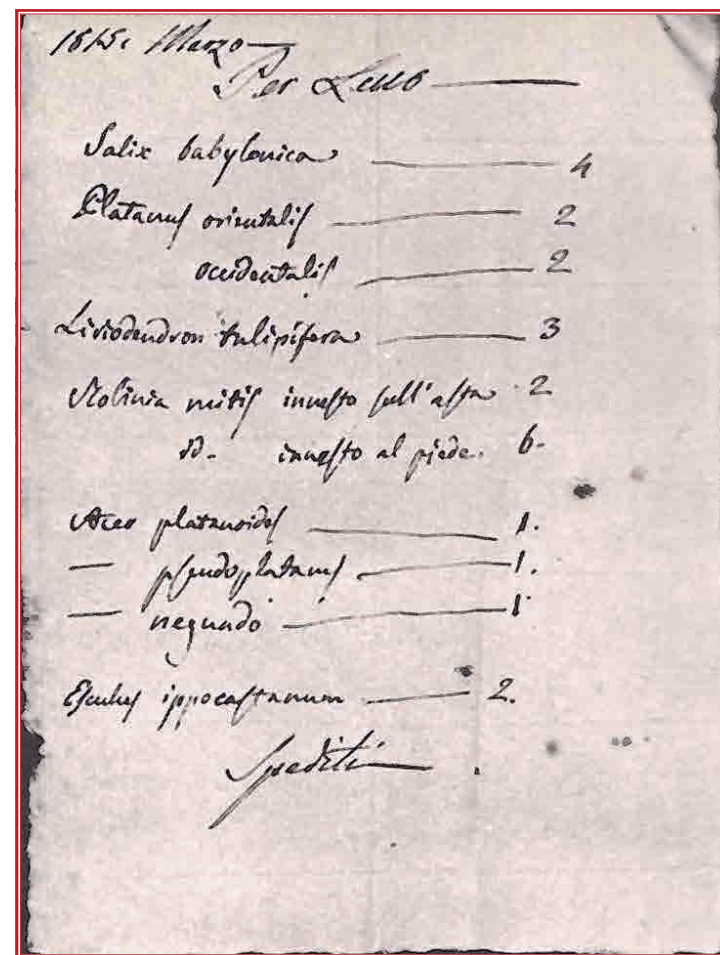 1815. Marzo
Per Leno
Salix babylonica 4
Platanus orientalis 2
occidentalis 2
Liriodendron tulipifera 3
Robinia mitis innesto sull'asta 2
id. innesto al piede. 6.
Acer platanoides 1.
— pseudoplatanus 1.
— negundo 1
Esculus ippocastanum 2.
Spediti